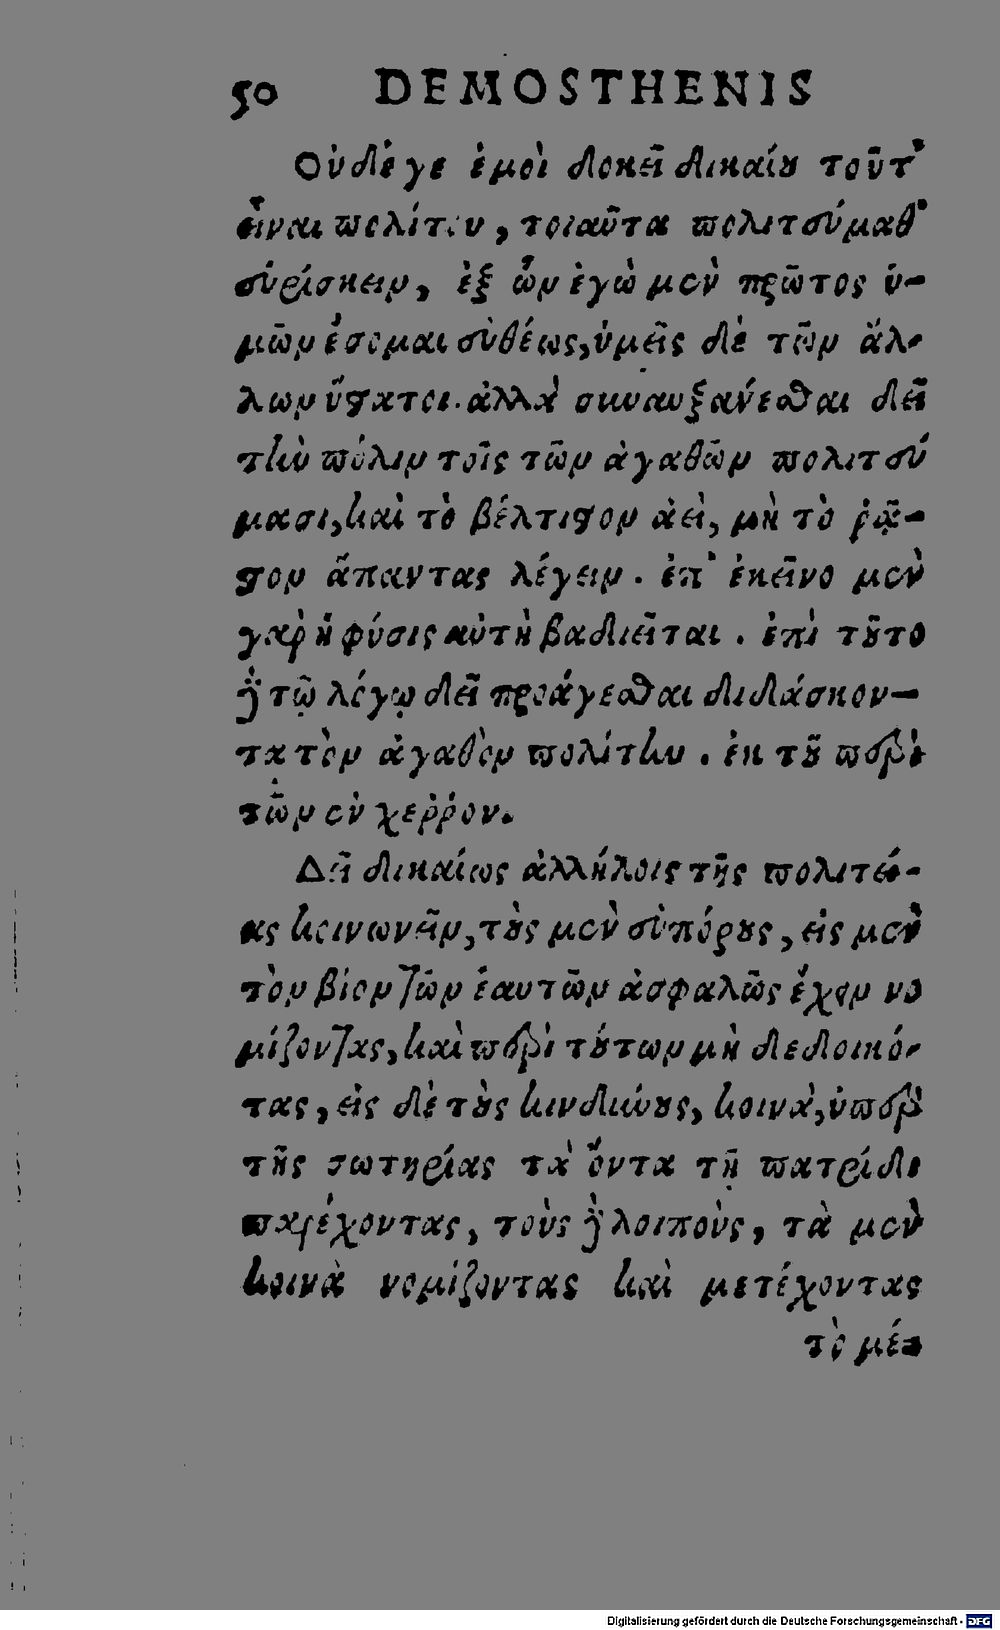 50 DEMOSTHENIS
Οὐδέ γε ἐμοὶ δοκεῖ δικαίου τοῦτ'
εἶναι πολίτου, τοιαῦτα πολιτεύμαθ'
εὑρίσκειν, ἐξ ὧν ἐγὼ μὲν πρῶτος ὑ-
μῶν ἔσομαι εὐθέως, ὑμεῖς δὲ τῶν ἄλ-
λων ὕστατοι. ἀλλὰ συναυξάνεσθαι δεῖ
τὴν πόλιν τοῖς τῶν ἀγαθῶν πολιτεύ
μασι, καὶ τὸ βέλτιστον ἀεὶ, μὴ τὸ ῥᾷ-
στον ἅπαντας λέγειν. ἐπ' ἐκεῖνο μὲν
γὰρ ἡ φύσις αὐτὴ βαδιεῖται. ἐπὶ τοῦτο
δὲ τῷ λόγῳ δεῖ προάγεσθαι διδάσκον-
τα τὸν ἀγαθὸν πολίτην. ἐκ τοῦ περὶ
τῶν ἐν χερρόν.
Δεῖ δικαίως ἀλλήλοις τῆς πολιτεί-
ας κοινωνεῖν, τοὺς μὲν εὐπόρους, εἰς μὲν
τὸν βίον τῶν ἑαυτῶν ἀσφαλῶς ἔχειν νο
μίζοντας, καὶ περὶ τούτων μὴ δεδοικό-
τας, εἰς δὲ τοὺς κινδύνους, κοινὰ, ὑπὲρ
τῆς σωτηρίας τὰ ὄντα τῇ πατρίδι
παρέχοντας, τοὺς δὲ λοιποὺς, τὰ μὲν
κοινὰ νομίζοντας καὶ μετέχοντας
τὸ μέ-
Digitalisierung gefördert durch die Deutsche Forschungsgemeinschaft - DFG